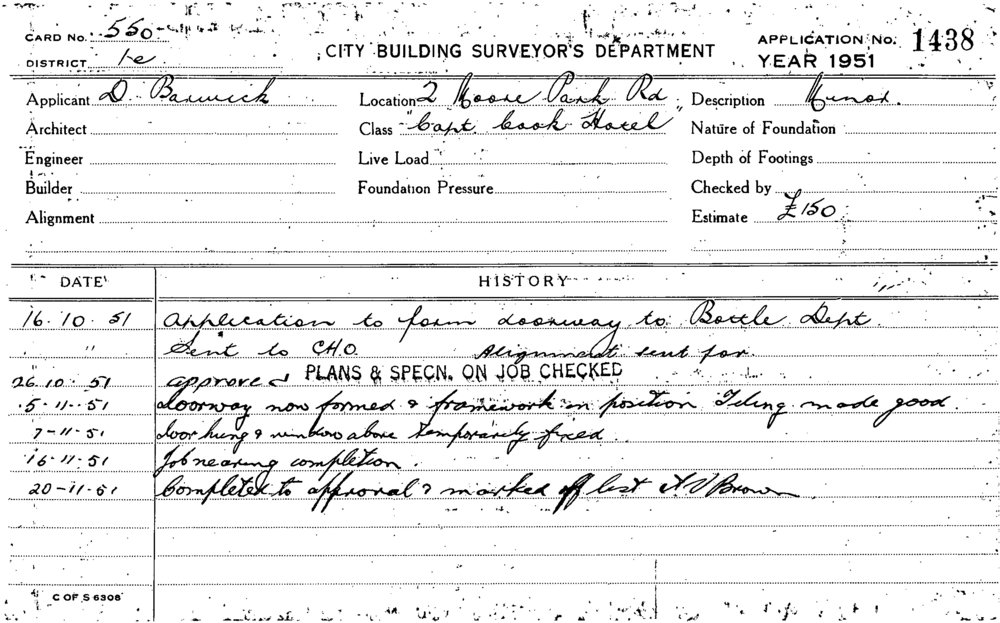 CARD No. 550
CITY BUILDING SURVEYOR'S DEPARTMENT
APPLICATION No. 1438
DISTRICT 1e
YEAR 1951
Applicant D Barwick Location 2 Moore Park Rd Description Minor.
Architect Class "Capt Cook Hotel" Nature of Foundation
Engineer Live Load Depth of Footings
Builder Foundation Pressure Checked by
Alignment Estimate £150
DATE HISTORY
16.10.51 Application to form doorway to Bottle Dept
" Sent to C.H.O. Alignment sent for
26.10.51 approved PLANS & SPECN. ON JOB CHECKED
5-11-51 Doorway now formed & framework in position Tiling made good
7-11-51 Door hung & window above temporarily fixed
16-11-51 Job nearing completion
20-11-51 Completed to approval & marked off list Brown
C OF S 6308